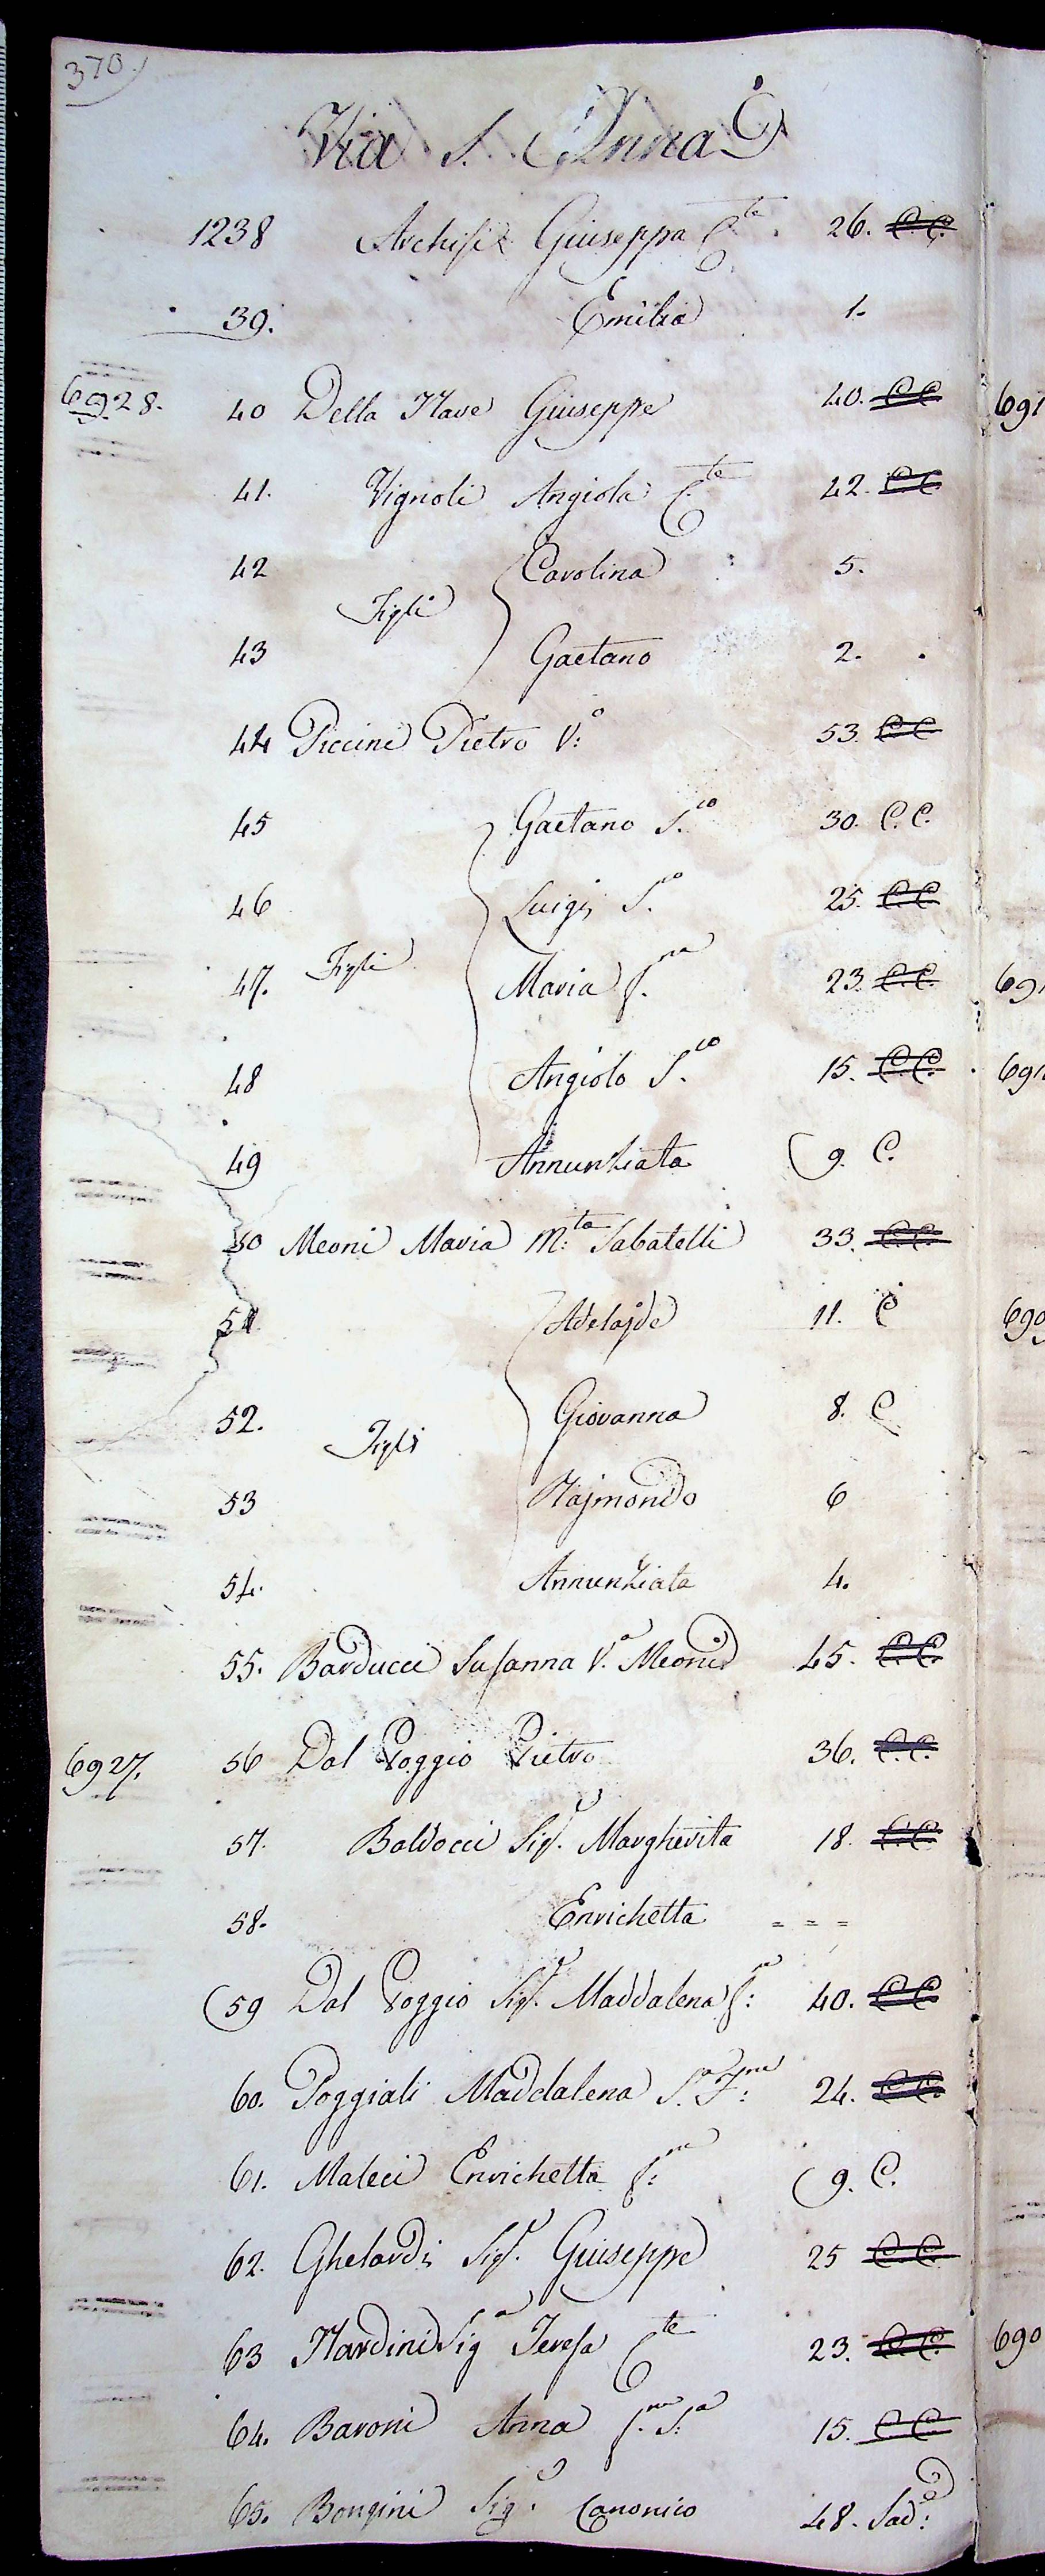 370.
Via S. Anna
1238 Archisi Giuseppa C.te 26. C.C.
39. Emilia 1.
6928. 40 Della Nave Giuseppe 40. C.C.
41. Vignoli Angiola C.te 42. C.C.
42 Carolina 5.
Figli
43 Gaetano 2.
44 Piccini Pietro V.o 53. C.C.
45 Gaetano S.co 30. C.C.
46 Luigi S.co 25. C.C.
47. Figli Maria f.na 23. C.C.
48 Angiolo S.co 15. C.C.
49 Annunziata 9. C.
50 Meoni Maria M.ta Sabatelli 33. C.C.
51 Adelajde 11. C
52. Giovanna 8. C
Figli
53 Rajmondo 6
54. Annunziata 4.
55. Barducci Susanna V.a Meoni 45. C.C.
6927. 56 Dal Poggio Pietro 36. C.C.
57. Baldocci Sig.a Margherita 18. C.C.
58. Enrichetta = = =
59 Dal Poggio Sig.a Maddalena f.a 40. C.C.
60. Poggiali Maddalena S.a F.na 24. C.C.
61. Maleci Enrichetta f.na 9. C.
62. Ghelardi Sig.r Giuseppe 25 C.C.
63 Nardini Sig.a Teresa C.te 23. C.C.
64. Baroni Anna f.na S.a 15. C.C.
65. Bongini Sig.r Canonico 48. Sad.e